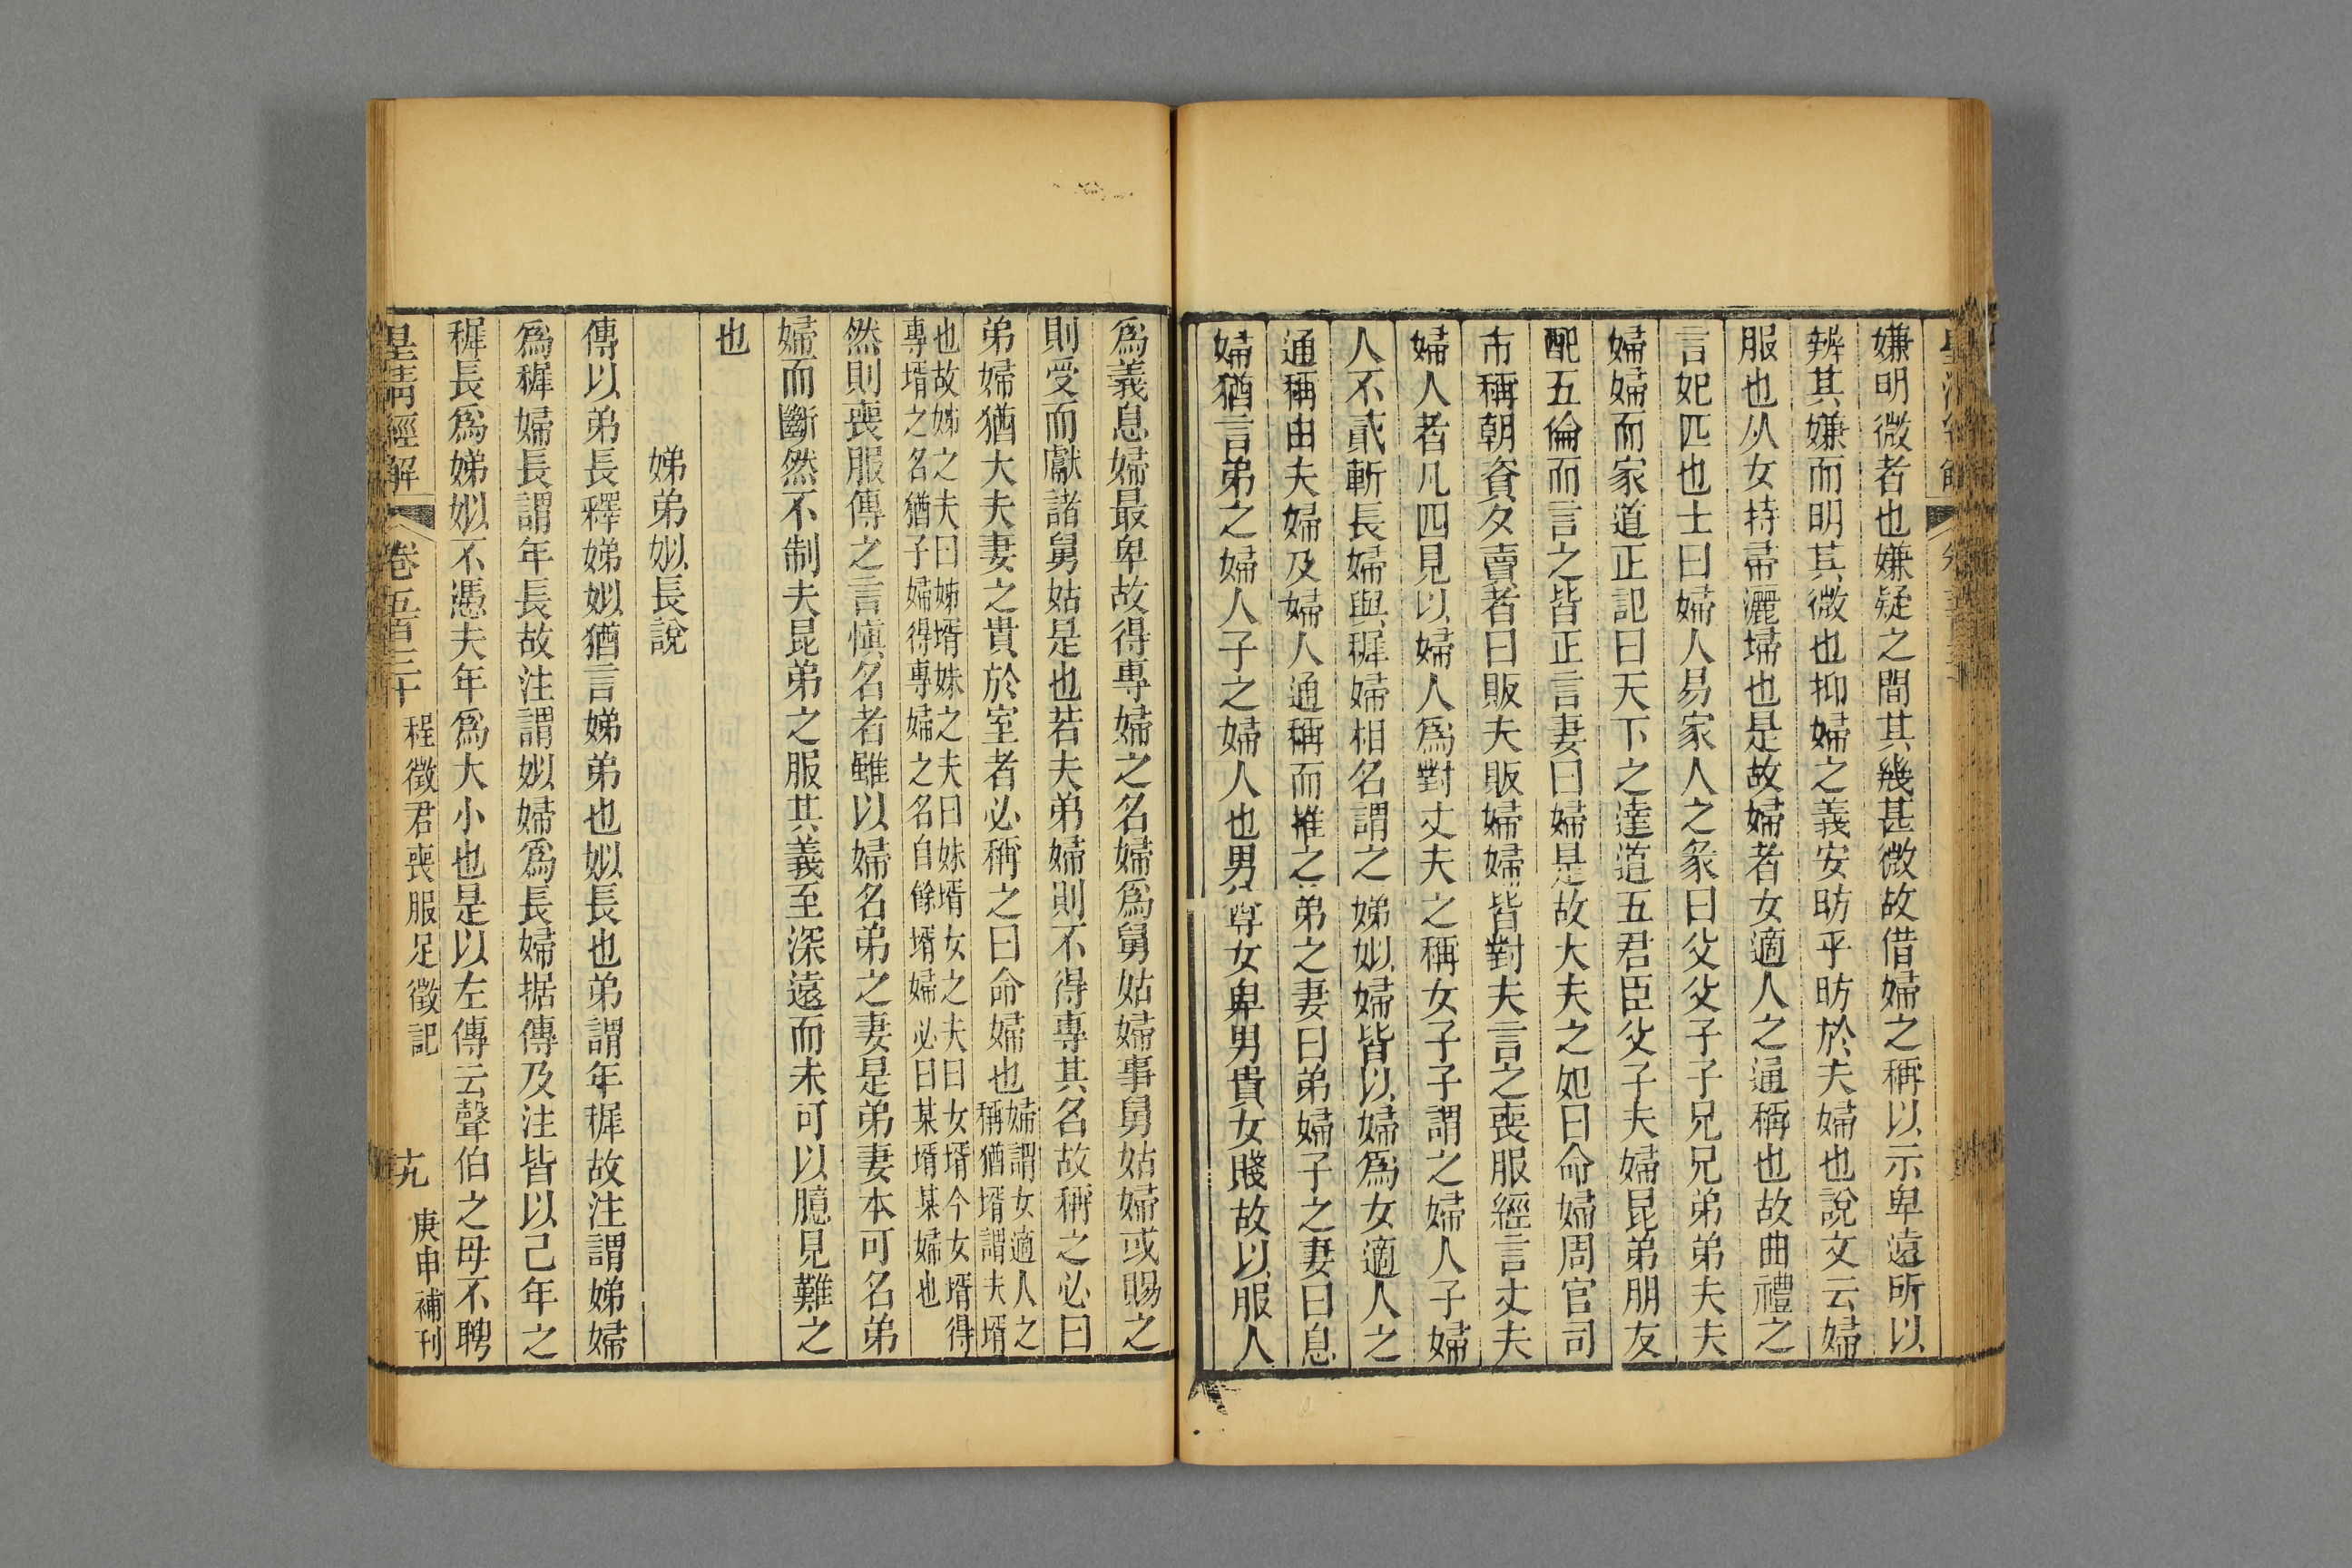 嫌明微者也嫌疑之間其幾甚微故借婦之稱以示卑遠所以
辨其嫌而明其微也抑婦之義安昉乎昉於夫婦也說文云婦
服也从女持帚灑埽也是故婦者女適人之通稱也故曲禮之
言妃匹也士曰婦人易家人之彖曰父父子子兄兄弟弟夫夫
婦婦而家道正記曰天下之達道五君臣父子夫婦昆弟朋友
配五倫而言之皆正言妻曰婦是故大夫之妃曰命婦周官司
市稱朝資夕賣者曰販夫販婦婦皆對夫言之喪服經言丈夫
婦人者凡四見以婦人爲對丈夫之稱女子子謂之婦人子婦
人不貳斬長婦與穉婦相名謂之娣姒婦皆以婦爲女適人之
通稱由夫婦及婦人通稱而推之弟之妻曰弟婦子之妻曰息
婦猶言弟之婦人子之婦人也男尊女卑男貴女賤故以服人
爲義息婦最卑故得專婦之名婦爲舅姑婦事舅姑婦或賜之
則受而獻諸舅姑是也若夫弟婦則不得專其名故稱之必曰
弟婦猶大夫妻之貴於室者必稱之曰命婦也婦謂女適人之
稱猶壻謂夫壻
也故姊之夫曰姊壻妹之夫曰妹壻女之夫曰女壻今女壻得
專壻之名猶子婦得專婦之名自餘壻婦必曰某壻某婦也
然則喪服傳之言愼名者雖以婦名弟之妻是弟妻本可名弟
婦而斷然不制夫昆弟之服其義至深遠而未可以臆見難之
也
娣弟姒長說
傳以弟長釋娣姒猶言娣弟也姒長也弟謂年穉故注謂娣婦
爲穉婦長謂年長故注謂姒婦爲長婦据傳及注皆以己年之
穉長爲娣姒不憑夫年爲大小也是以左傳云聲伯之母不聘
皇清經解
卷五百三十
程徵君喪服足徵記
十九
庚申補刊